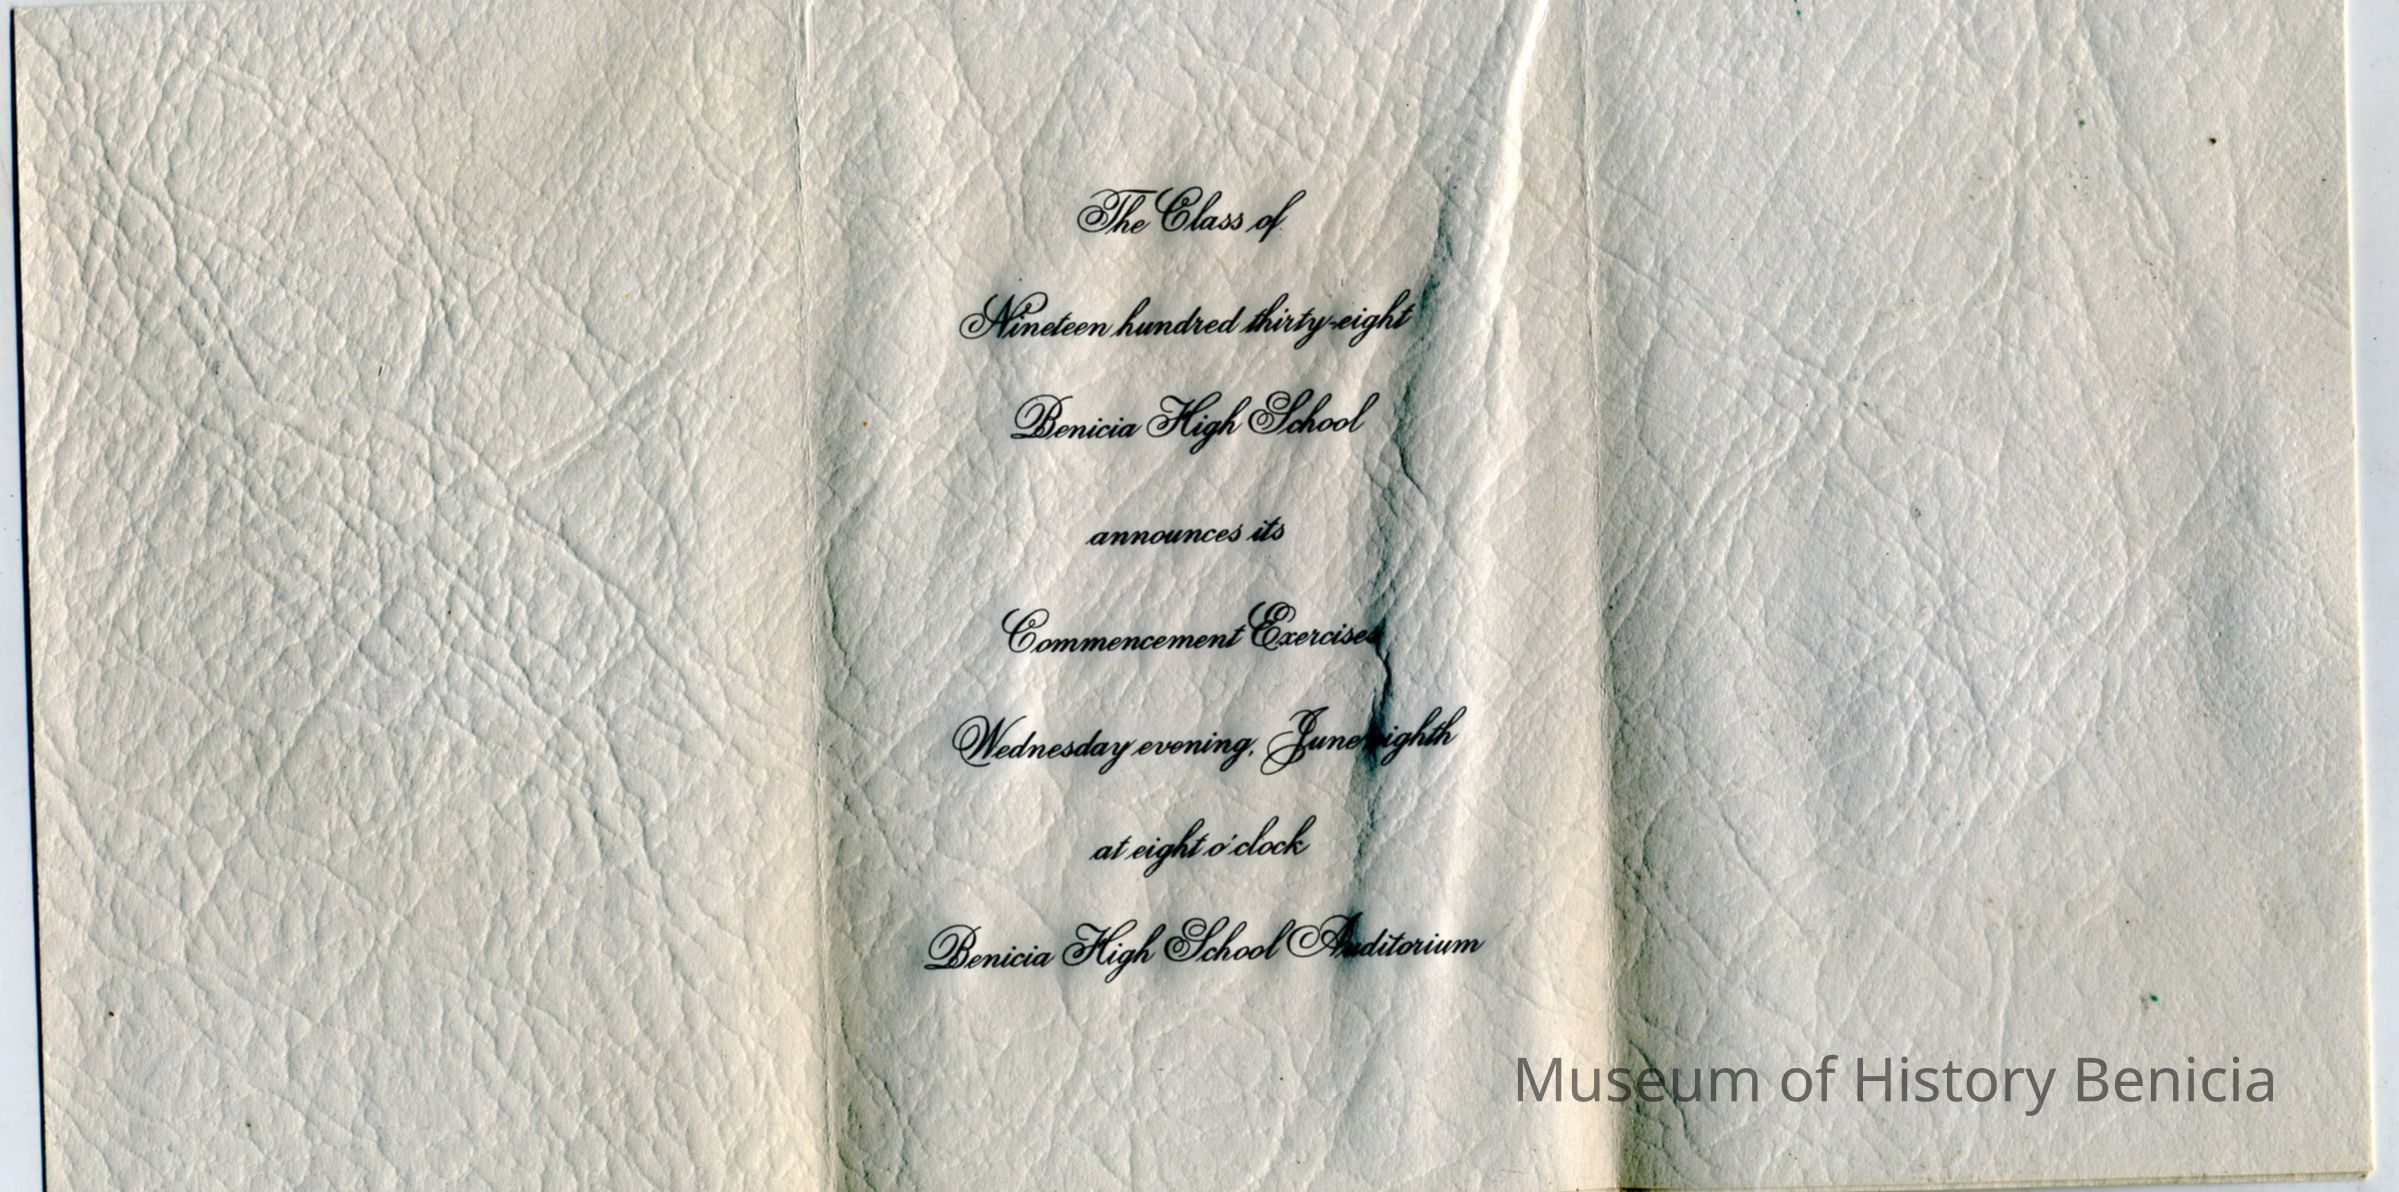 The Class of
Nineteen hundred thirty-eight
Benicia High School
announces its
Commencement Exercises
Wednesday evening, June eighth
at eight o'clock
Benicia High School Auditorium
Museum of History Benicia